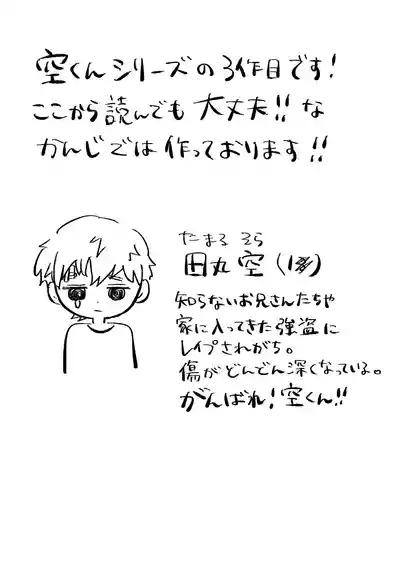 空くんシリーズの3作目です!
ここから読んでも大丈夫!!な
かんじでは作っております!!
たまる そら
田丸 空 (1)
知らないお兄さんたちや
家に入ってきた強盗に
レイプされがち。
傷がどんどん深くなっている。
がんばれ!空くん!!